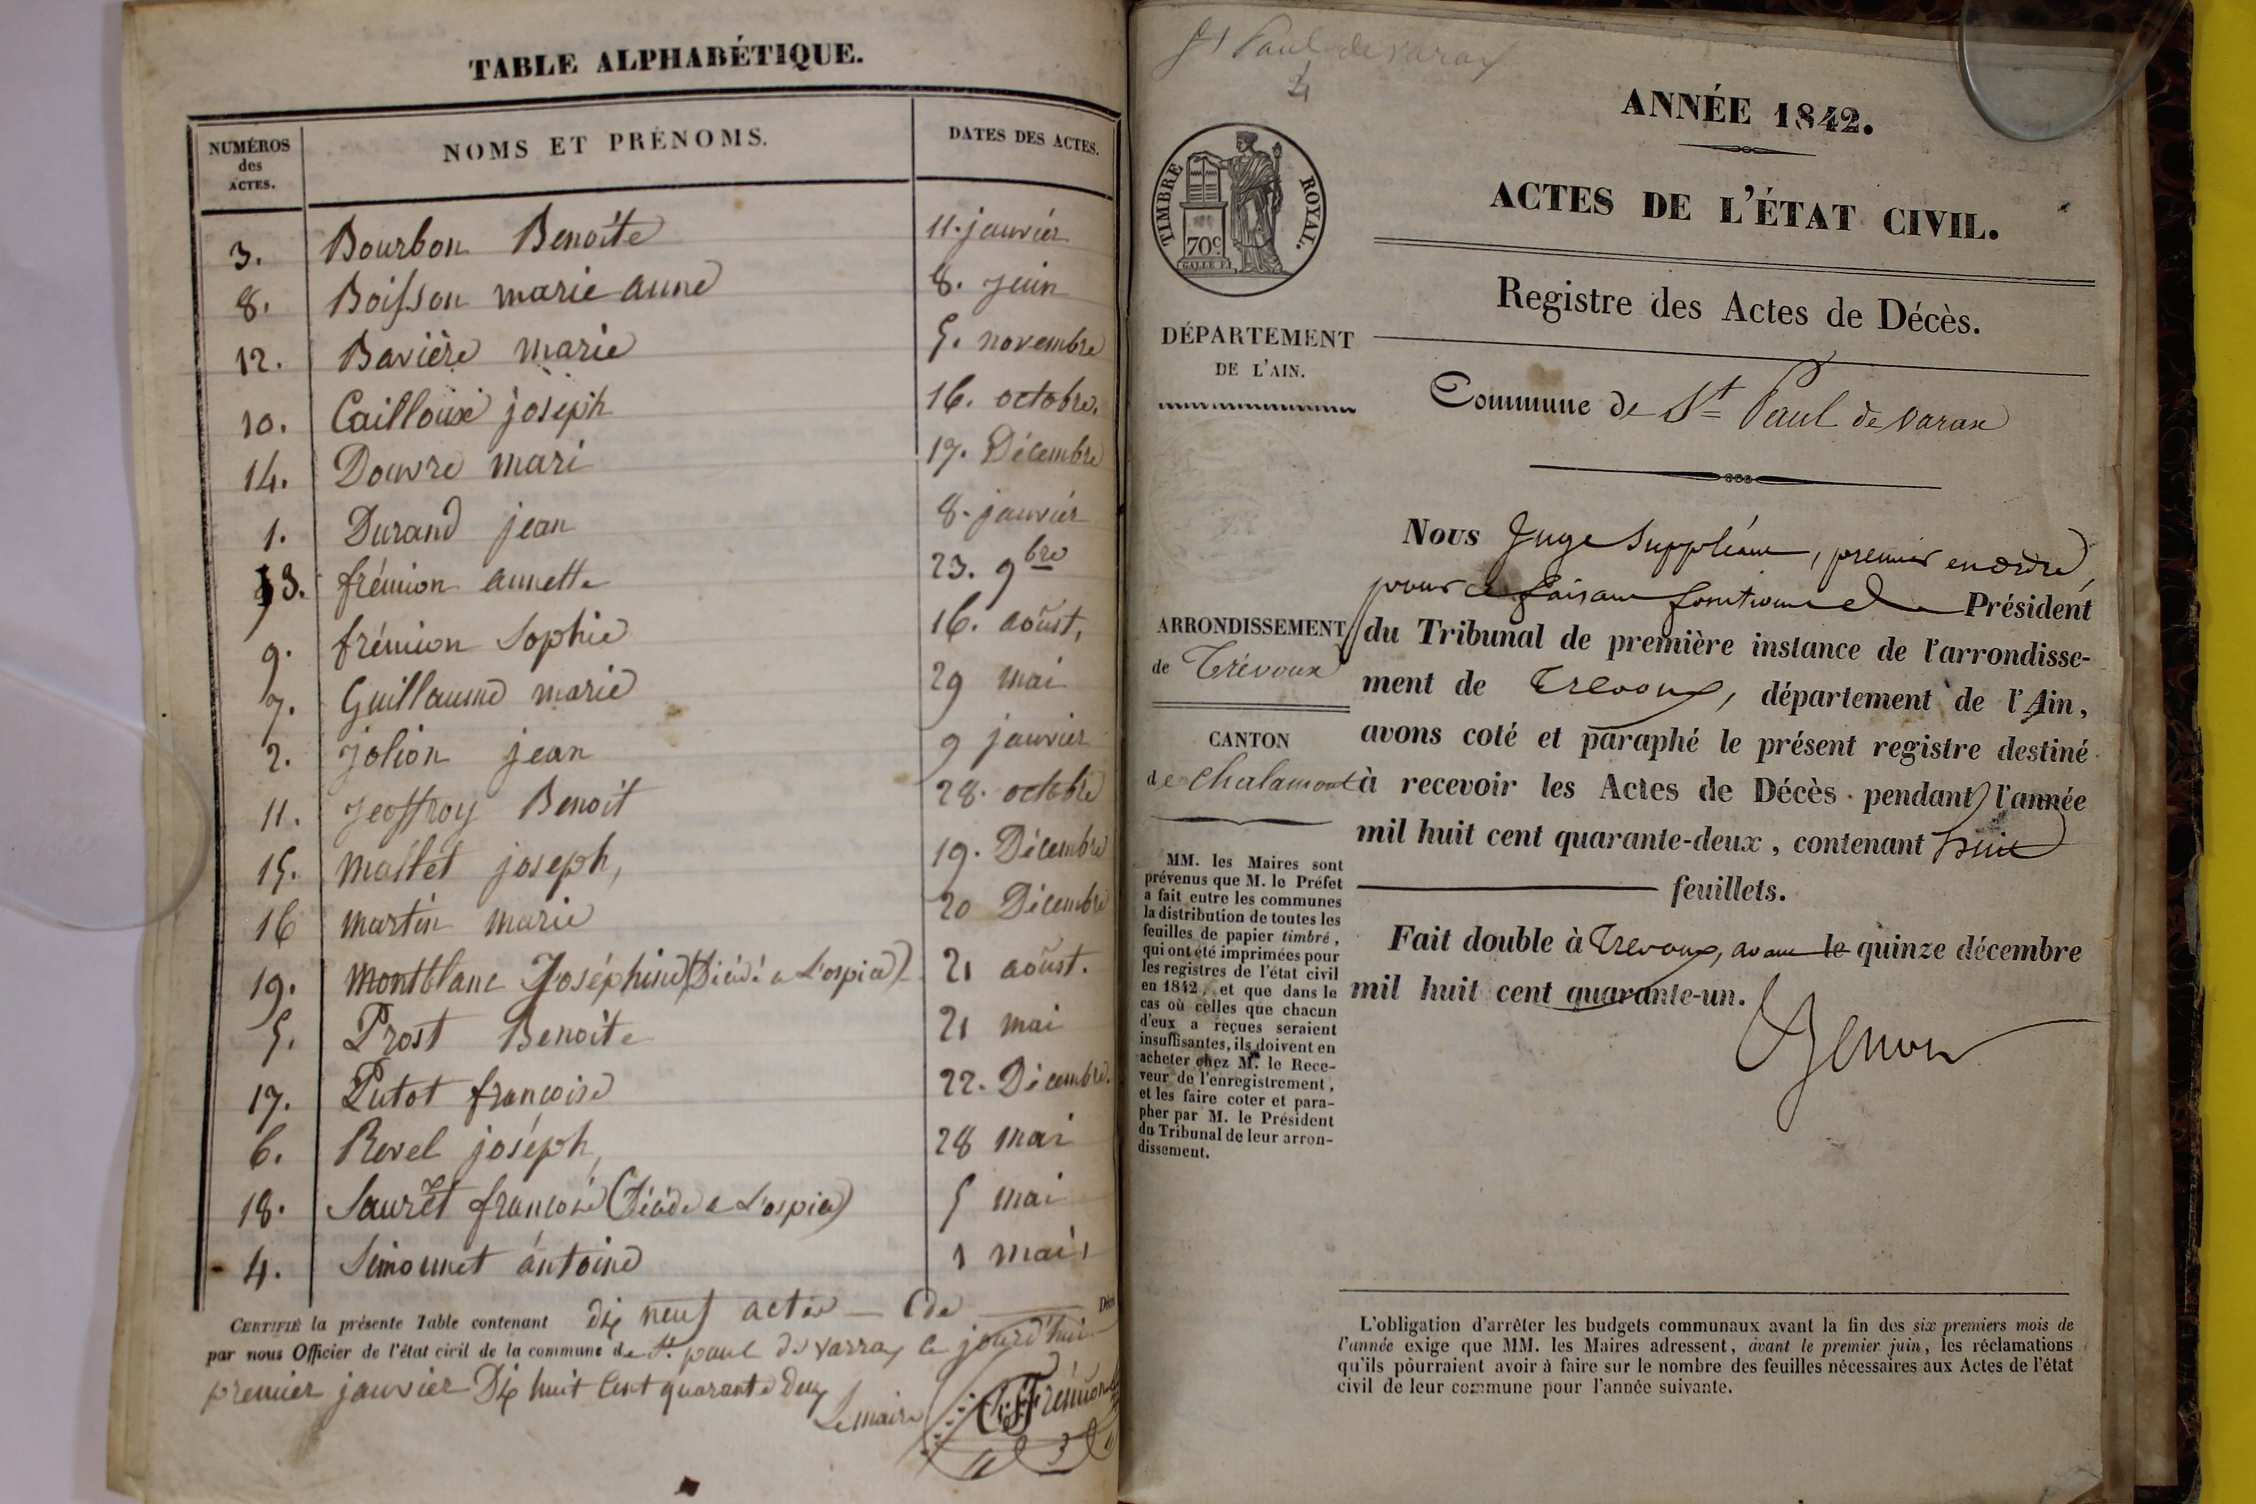 TABLE ALPHABÉTIQUE.
NUMÉROS
des
ACTES.
NOMS ET PRÉNOMS.
DATES DES ACTES.
3. Bourbon Benoite 11. janvier
8. Boisson marie anne 8. Juin
12. Bavière marie 5. novembre
10. Cailloux joseph 16. octobre.
14. Douvre mari 17. Décembre
1. Durand jean 8. janvier
13. frémion annette 23. 9bre
9. frémion Sophie 16. aoust,
7. Guillaume marie 29 mai
2. jolion jean 9 janvier
11. jeoffroy Benoit 28. octobre
15. mallet joseph, 19. Décembre
16 martin marie 20 Décembre
19. montblanc Joséphine (Décédé a L'ospice) 21 aoust.
5. Prost Benoite 21 mai
17. Putot françoise 22. Décembre.
6. Revel joséph, 28 mai
18. Sauret (Décédé a L'ospice) 5 mai
4. Simonnet antoine 1 mai
CERTIFIÉ la présente Table contenant dix neuf actes de Déc
par nous Officier de l'état civil de la commune de St. paul de varax le jourd'hui
premier janvier Dix huit Cent quarante deux
Le maire Frémion
St Paul de varax
4
TIMBRE ROYAL.
70c
GALLE F.
ANNÉE 1842.
ACTES DE L'ÉTAT CIVIL.
Registre des Actes de Décès.
DÉPARTEMENT
DE L'AIN.
Commune de St Paul de varax
ARRONDISSEMENT
de Trévoux
CANTON
de Chalamont
Nous Juge Suppléant, premier en ordre,
pour ce faisant fonctions de Président
du Tribunal de première instance de l'arrondisse-
ment de Trevoux, département de l'Ain,
avons coté et paraphé le présent registre destiné
à recevoir les Actes de Décès pendant l'année
mil huit cent quarante-deux, contenant huit
feuillets.
Fait double à Trevoux, avant le quinze décembre
mil huit cent quarante-un.
MM. les Maires sont
prévenus que M. le Préfet
a fait entre les communes
la distribution de toutes les
feuilles de papier timbré,
qui ont été imprimées pour
les registres de l'état civil
en 1842, et que dans le
cas où celles que chacun
d'eux a reçues seraient
insuffisantes, ils doivent en
acheter chez Mr. le Rece-
veur de l'enregistrement,
et les faire coter et para-
pher par M. le Président
du Tribunal de leur arron-
dissement.
L'obligation d'arrêter les budgets communaux avant la fin des six premiers mois de
l'année exige que MM. les Maires adressent, avant le premier juin, les réclamations
qu'ils pourraient avoir à faire sur le nombre des feuilles nécessaires aux Actes de l'état
civil de leur commune pour l'année suivante.